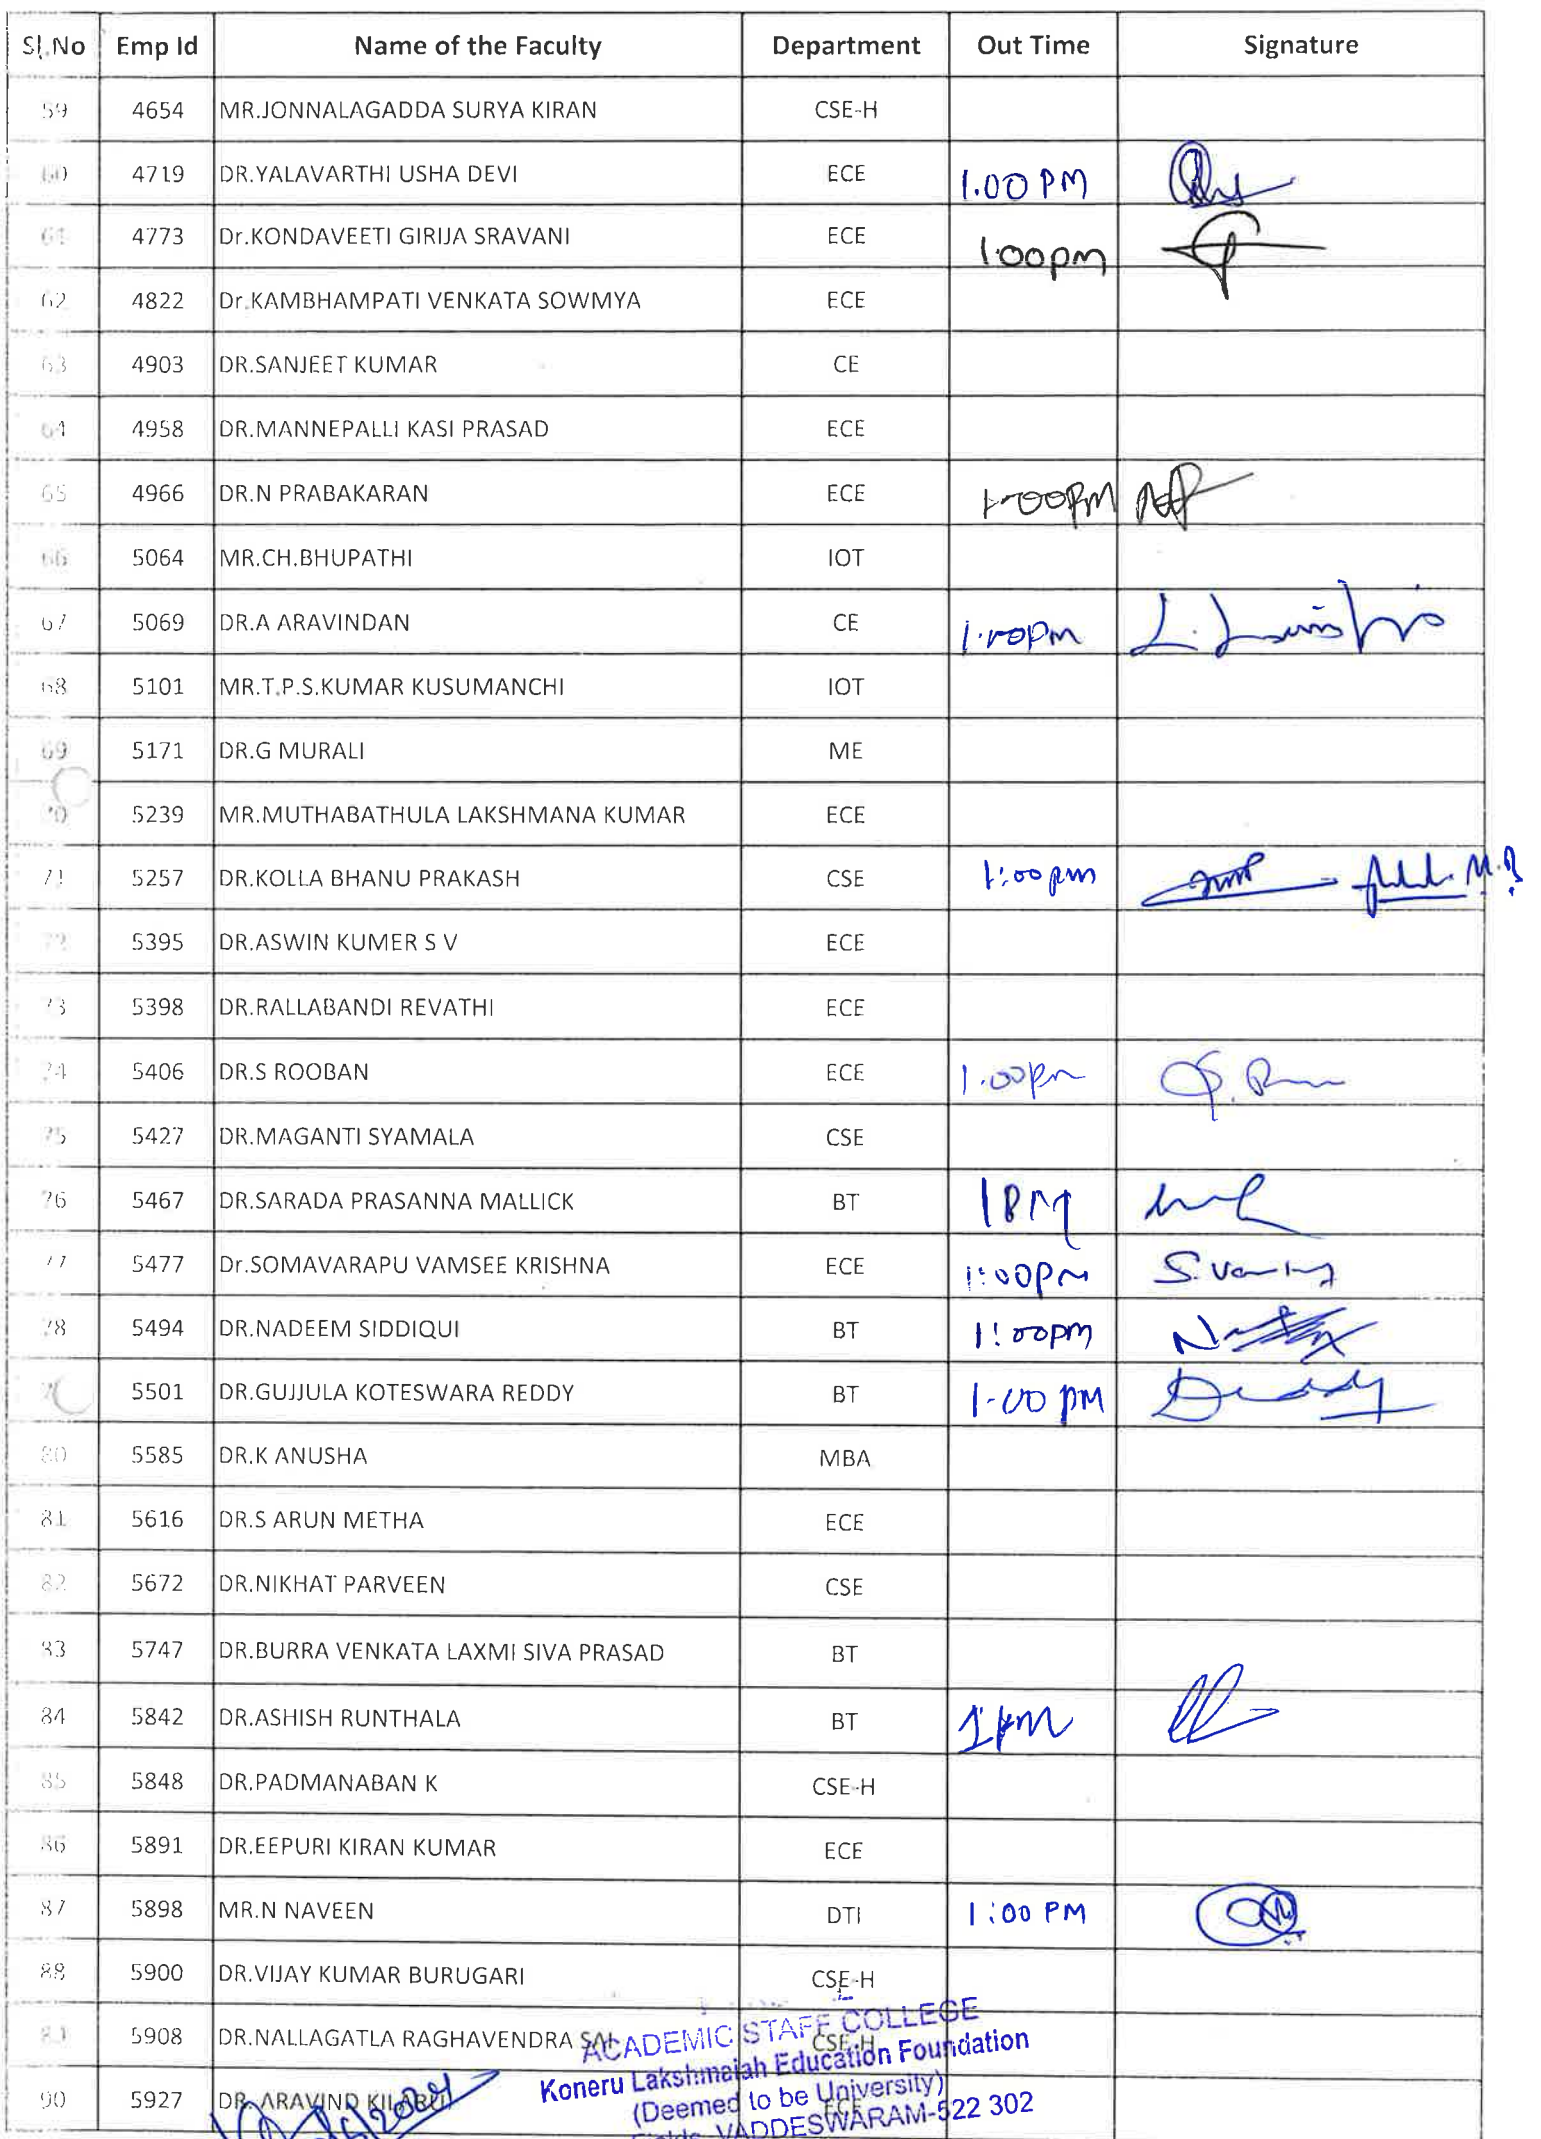 Sl.No Emp Id Name of the Faculty Department Out Time Signature
59 4654 MR.JONNALAGADDA SURYA KIRAN CSE-H
60 4719 DR.YALAVARTHI USHA DEVI ECE 1.00 PM
61 4773 Dr.KONDAVEETI GIRIJA SRAVANI ECE 1.00pm
62 4822 Dr.KAMBHAMPATI VENKATA SOWMYA ECE
63 4903 DR.SANJEET KUMAR CE
64 4958 DR.MANNEPALLI KASI PRASAD ECE
65 4966 DR.N PRABAKARAN ECE 1-00PM
66 5064 MR.CH.BHUPATHI IOT
67 5069 DR.A ARAVINDAN CE 1.00pm
68 5101 MR.T.P.S.KUMAR KUSUMANCHI IOT
69 5171 DR.G MURALI ME
70 5239 MR.MUTHABATHULA LAKSHMANA KUMAR ECE
71 5257 DR.KOLLA BHANU PRAKASH CSE 1:00pm
72 5395 DR.ASWIN KUMER S V ECE
73 5398 DR.RALLABANDI REVATHI ECE
74 5406 DR.S ROOBAN ECE 1.00pm
75 5427 DR.MAGANTI SYAMALA CSE
76 5467 DR.SARADA PRASANNA MALLICK BT 1PM
77 5477 Dr.SOMAVARAPU VAMSEE KRISHNA ECE 1:00pm
78 5494 DR.NADEEM SIDDIQUI BT 1:00pm
5501 DR.GUJJULA KOTESWARA REDDY BT 1-00 PM
80 5585 DR.K ANUSHA MBA
81 5616 DR.S ARUN METHA ECE
82 5672 DR.NIKHAT PARVEEN CSE
83 5747 DR.BURRA VENKATA LAXMI SIVA PRASAD BT
84 5842 DR.ASHISH RUNTHALA BT 1pm
85 5848 DR.PADMANABAN K CSE-H
86 5891 DR.EEPURI KIRAN KUMAR ECE
87 5898 MR.N NAVEEN DTI 1:00 PM
88 5900 DR.VIJAY KUMAR BURUGARI CSE-H
5908 DR.NALLAGATLA RAGHAVENDRA SAI CSE-H
90 5927 DR. ARAVIND KILARU ECE
ACADEMIC STAFF COLLEGE
Koneru Lakshmaiah Education Foundation
(Deemed to be University)
Fields, VADDESWARAM-522 302